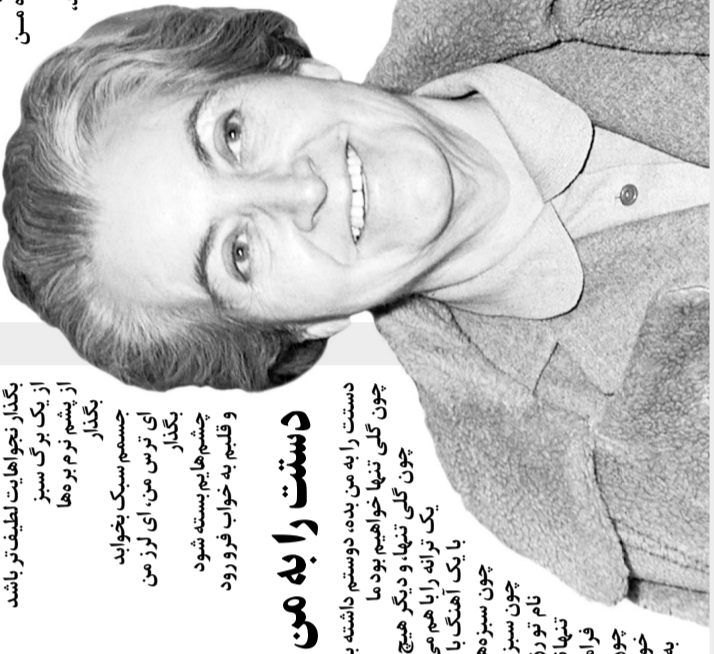 من
بگذار نجواهایت لطیف‌تر باشد
از یک برگ سبز
از پشم نرم بره‌ها
بگذار
جسمم سبک بخوابد
ای ترس من، ای لرز من
بگذار
چشم‌هایم بسته شود
و قلبم به خواب فرو رود
دستت را به من
دستت را به من بده، دوستم داشته
چون گلی تنها خواهیم بود ما
چون گلی تنها، و دیگر هیچ
یک ترانه را با هم
با یک آهنگ با
چون
چون
نام تو
تنها
به